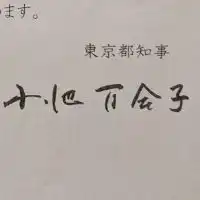 ます。
東京都知事
小池百合子